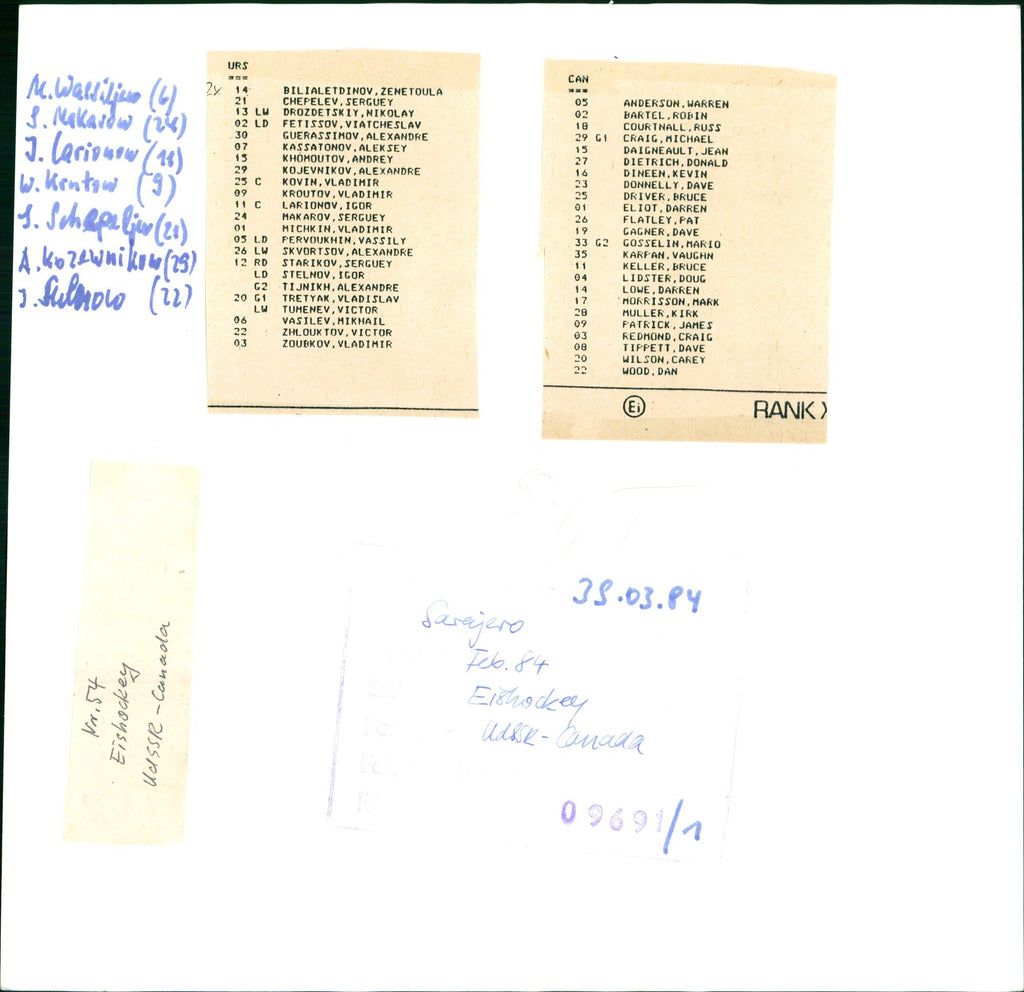 M. Wassiljew (6)
S. Makarow (24)
I. Larionow (11)
W. Krutow (9)
S. Schepeljew (21)
A. Kozewnikow (29)
I. Stelnow (22)
URS
===
2x 14 BILIALETDINOV, ZENETOULA
21 CHEPELEV, SERGUEY
13 LW DROZDETSKIY, NIKOLAY
02 LD FETISSOV, VIATCHESLAV
30 GUERASSIMOV, ALEXANDRE
07 KASSATONOV, ALEKSEY
15 KHOMOUTOV, ANDREY
29 KOJEVNIKOV, ALEXANDRE
25 C KOVIN, VLADIMIR
09 KROUTOV, VLADIMIR
11 C LARIONOV, IGOR
24 MAKAROV, SERGUEY
01 MICHKIN, VLADIMIR
05 LD PERVOUKHIN, VASSILY
26 LW SKVORTSOV, ALEXANDRE
12 RD STARIKOV, SERGUEY
LD STELNOV, IGOR
G2 TIJNIKH, ALEXANDRE
20 G1 TRETYAK, VLADISLAV
LW TUMENEV, VICTOR
06 VASILEV, MIKHAIL
22 ZHLOUKTOV, VICTOR
03 ZOUBKOV, VLADIMIR
CAN
===
05 ANDERSON, WARREN
02 BARTEL, ROBIN
18 COURTNALL, RUSS
29 G1 CRAIG, MICHAEL
15 DAIGNEAULT, JEAN
27 DIETRICH, DONALD
16 DINEEN, KEVIN
23 DONNELLY, DAVE
25 DRIVER, BRUCE
01 ELIOT, DARREN
26 FLATLEY, PAT
19 GAGNER, DAVE
33 G2 GOSSELIN, MARIO
35 KARPAN, VAUGHN
11 KELLER, BRUCE
04 LIDSTER, DOUG
14 LOWE, DARREN
17 MORRISSON, MARK
28 MULLER, KIRK
09 PATRICK, JAMES
03 REDMOND, CRAIG
08 TIPPETT, DAVE
20 WILSON, CAREY
22 WOOD, DAN
Ei RANK X
Nr. 54
Eishockey
UdSSR - Canada
39.03.84
Sarajevo
Feb. 84
Eishockey
UdSSR - Canada
09691/1